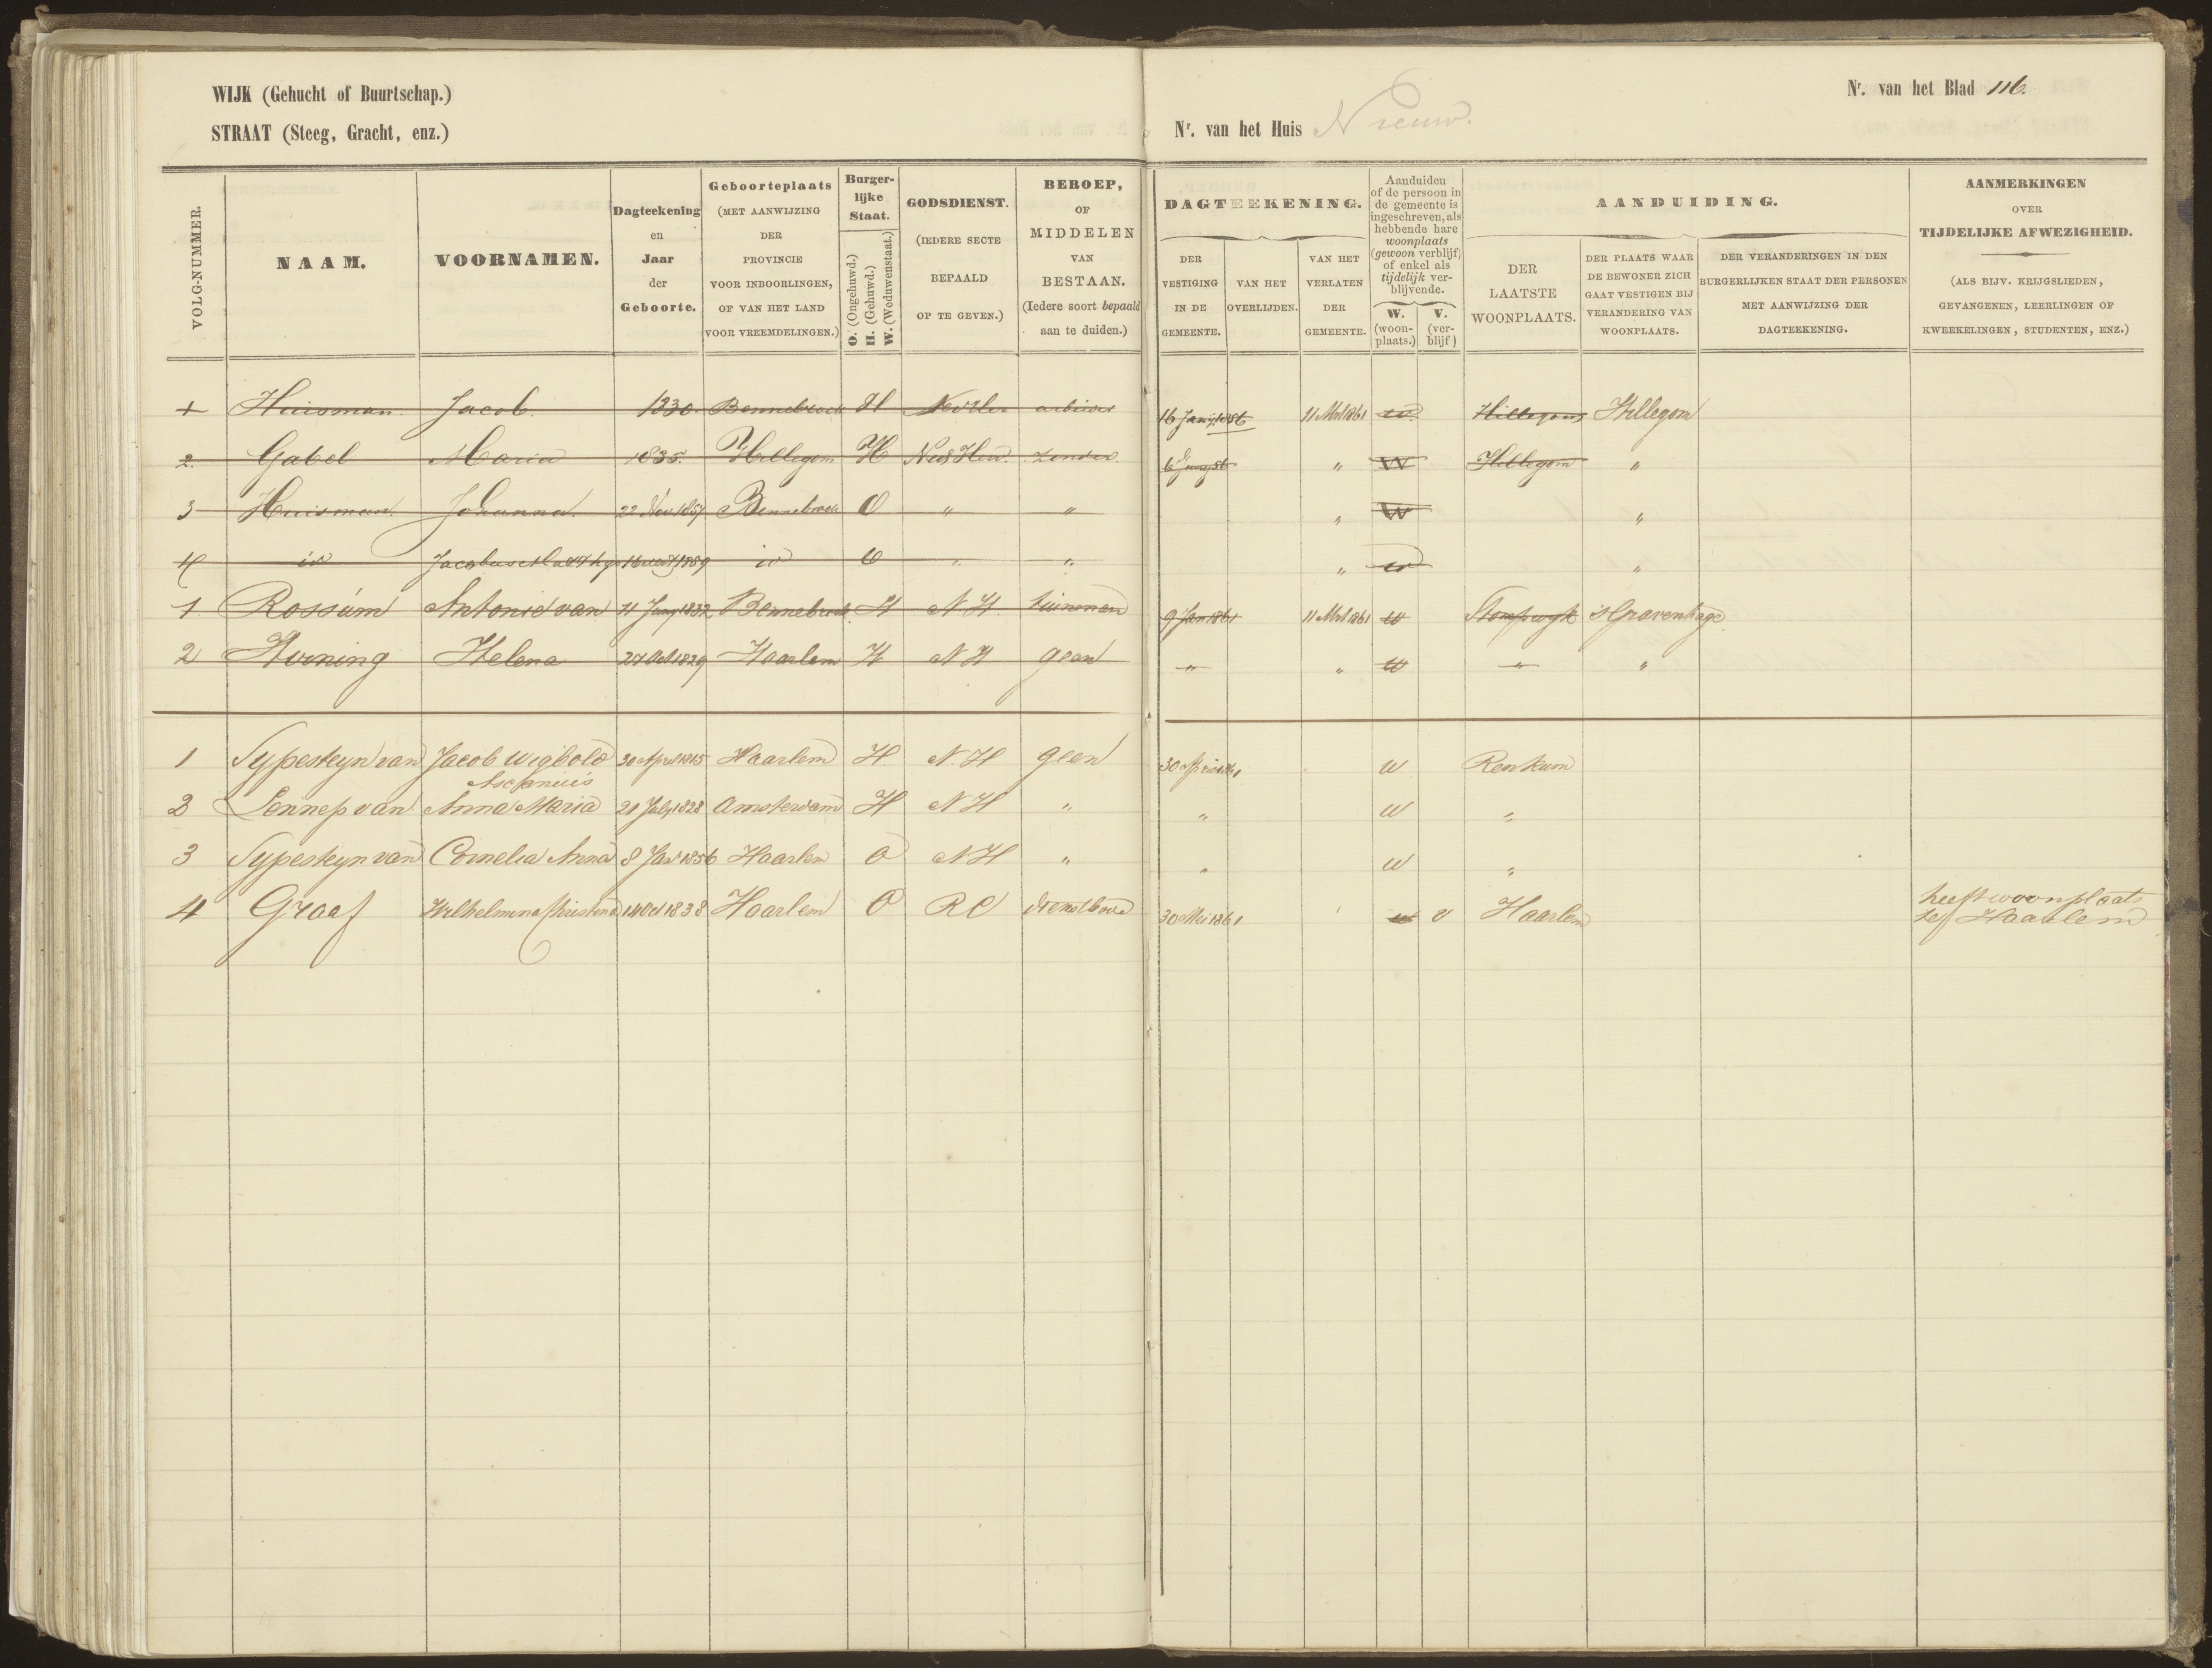 WIJK (Gehucht of Buurtschap.)
STRAAT (Steeg, Gracht, enz.)
Nr. van het Huis Nieuw.
Nr. van het Blad 116.
VOLG-NUMMER.
NAAM.
VOORNAMEN.
Dagteekening
en
Jaar
der
Geboorte.
Geboorteplaats
(MET AANWIJZING
DER
PROVINCIE
VOOR INBOORLINGEN,
OF VAN HET LAND
VOOR VREEMDELINGEN.)
Burger-
lijke
Staat.
O. (Ongehuwd.)
H. (Gehuwd.)
W. (Weduwenstaat.)
GODSDIENST.
(IEDERE SECTE
BEPAALD
OP TE GEVEN.)
BEROEP,
OF
MIDDELEN
VAN
BESTAAN.
(Iedere soort bepaald
aan te duiden.)
DAGTEEKENING.
DER
VESTIGING
IN DE
GEMEENTE.
VAN HET
OVERLIJDEN.
VAN HET
VERLATEN
DER
GEMEENTE.
Aanduiden
of de persoon in
de gemeente is
ingeschreven, als
hebbende hare
woonplaats
(gewoon verblijf)
of enkel als
tijdelijk ver-
blijvende.
W.
(woon-
plaats.)
V.
(ver-
blijf)
AANDUIDING.
DER
LAATSTE
WOONPLAATS.
DER PLAATS WAAR
DE BEWONER ZICH
GAAT VESTIGEN BIJ
VERANDERING VAN
WOONPLAATS.
DER VERANDERINGEN IN DEN
BURGERLIJKEN STAAT DER PERSONEN
MET AANWIJZING DER
DAGTEEKENING.
AANMERKINGEN
OVER
TIJDELIJKE AFWEZIGHEID.
(ALS BIJV. KRIJGSLIEDEN,
GEVANGENEN, LEERLINGEN OF
KWEEKELINGEN, STUDENTEN, ENZ.)
Huisman Jacob. 1830. Bennebroek H 11 Mrt 1861 w Hillegom Hillegom
2. Gabel Maria 1835. Hillegom H Ned Herv. zonder " W Hillegom "
3 Huisman Johanna 22 Nov 1857 Bennebroek O " " " W "
4 id Jacobus id O " " " w "
1 Rossum Antonie van 1832 Bennebroek H N H. tuinman 9 Jan 1861 11 Mrt 1861 w Stompwyk 'sGravenhage
2 Helena 27 Oct 1829 Haarlem H N H geen " " w " "
1 Sypesteyn van Jacob Wigbold 30 April 1815 Haarlem H N.H geen 30 April 1861 w Renkum
Ascanius
2 Lennep van Anna Maria 21 July 1828 Amsterdam H N H " " w "
3 Sypesteyn van Cornelia Anna 8 Jan 1856 Haarlem O N H " " w "
4 Graaf Wilhelmina Christina 14 Oct 1838 Haarlem O R C dienstbode 30 Mei 1861 w v Haarlem heeft woonplaats
te Haarlem